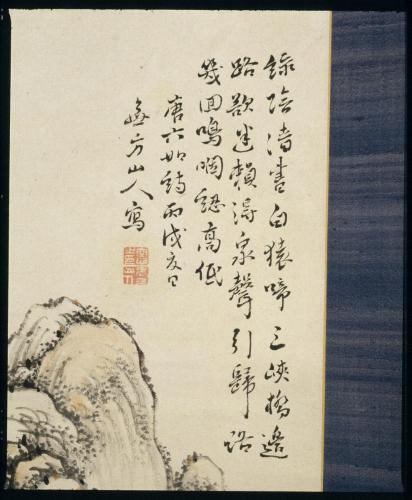 綠陰清晝白猿啼三峽橋邊
路欲迷賴得泉聲引歸路
幾回鳴咽高低
唐六如詩丙戌夏日
方山人寫